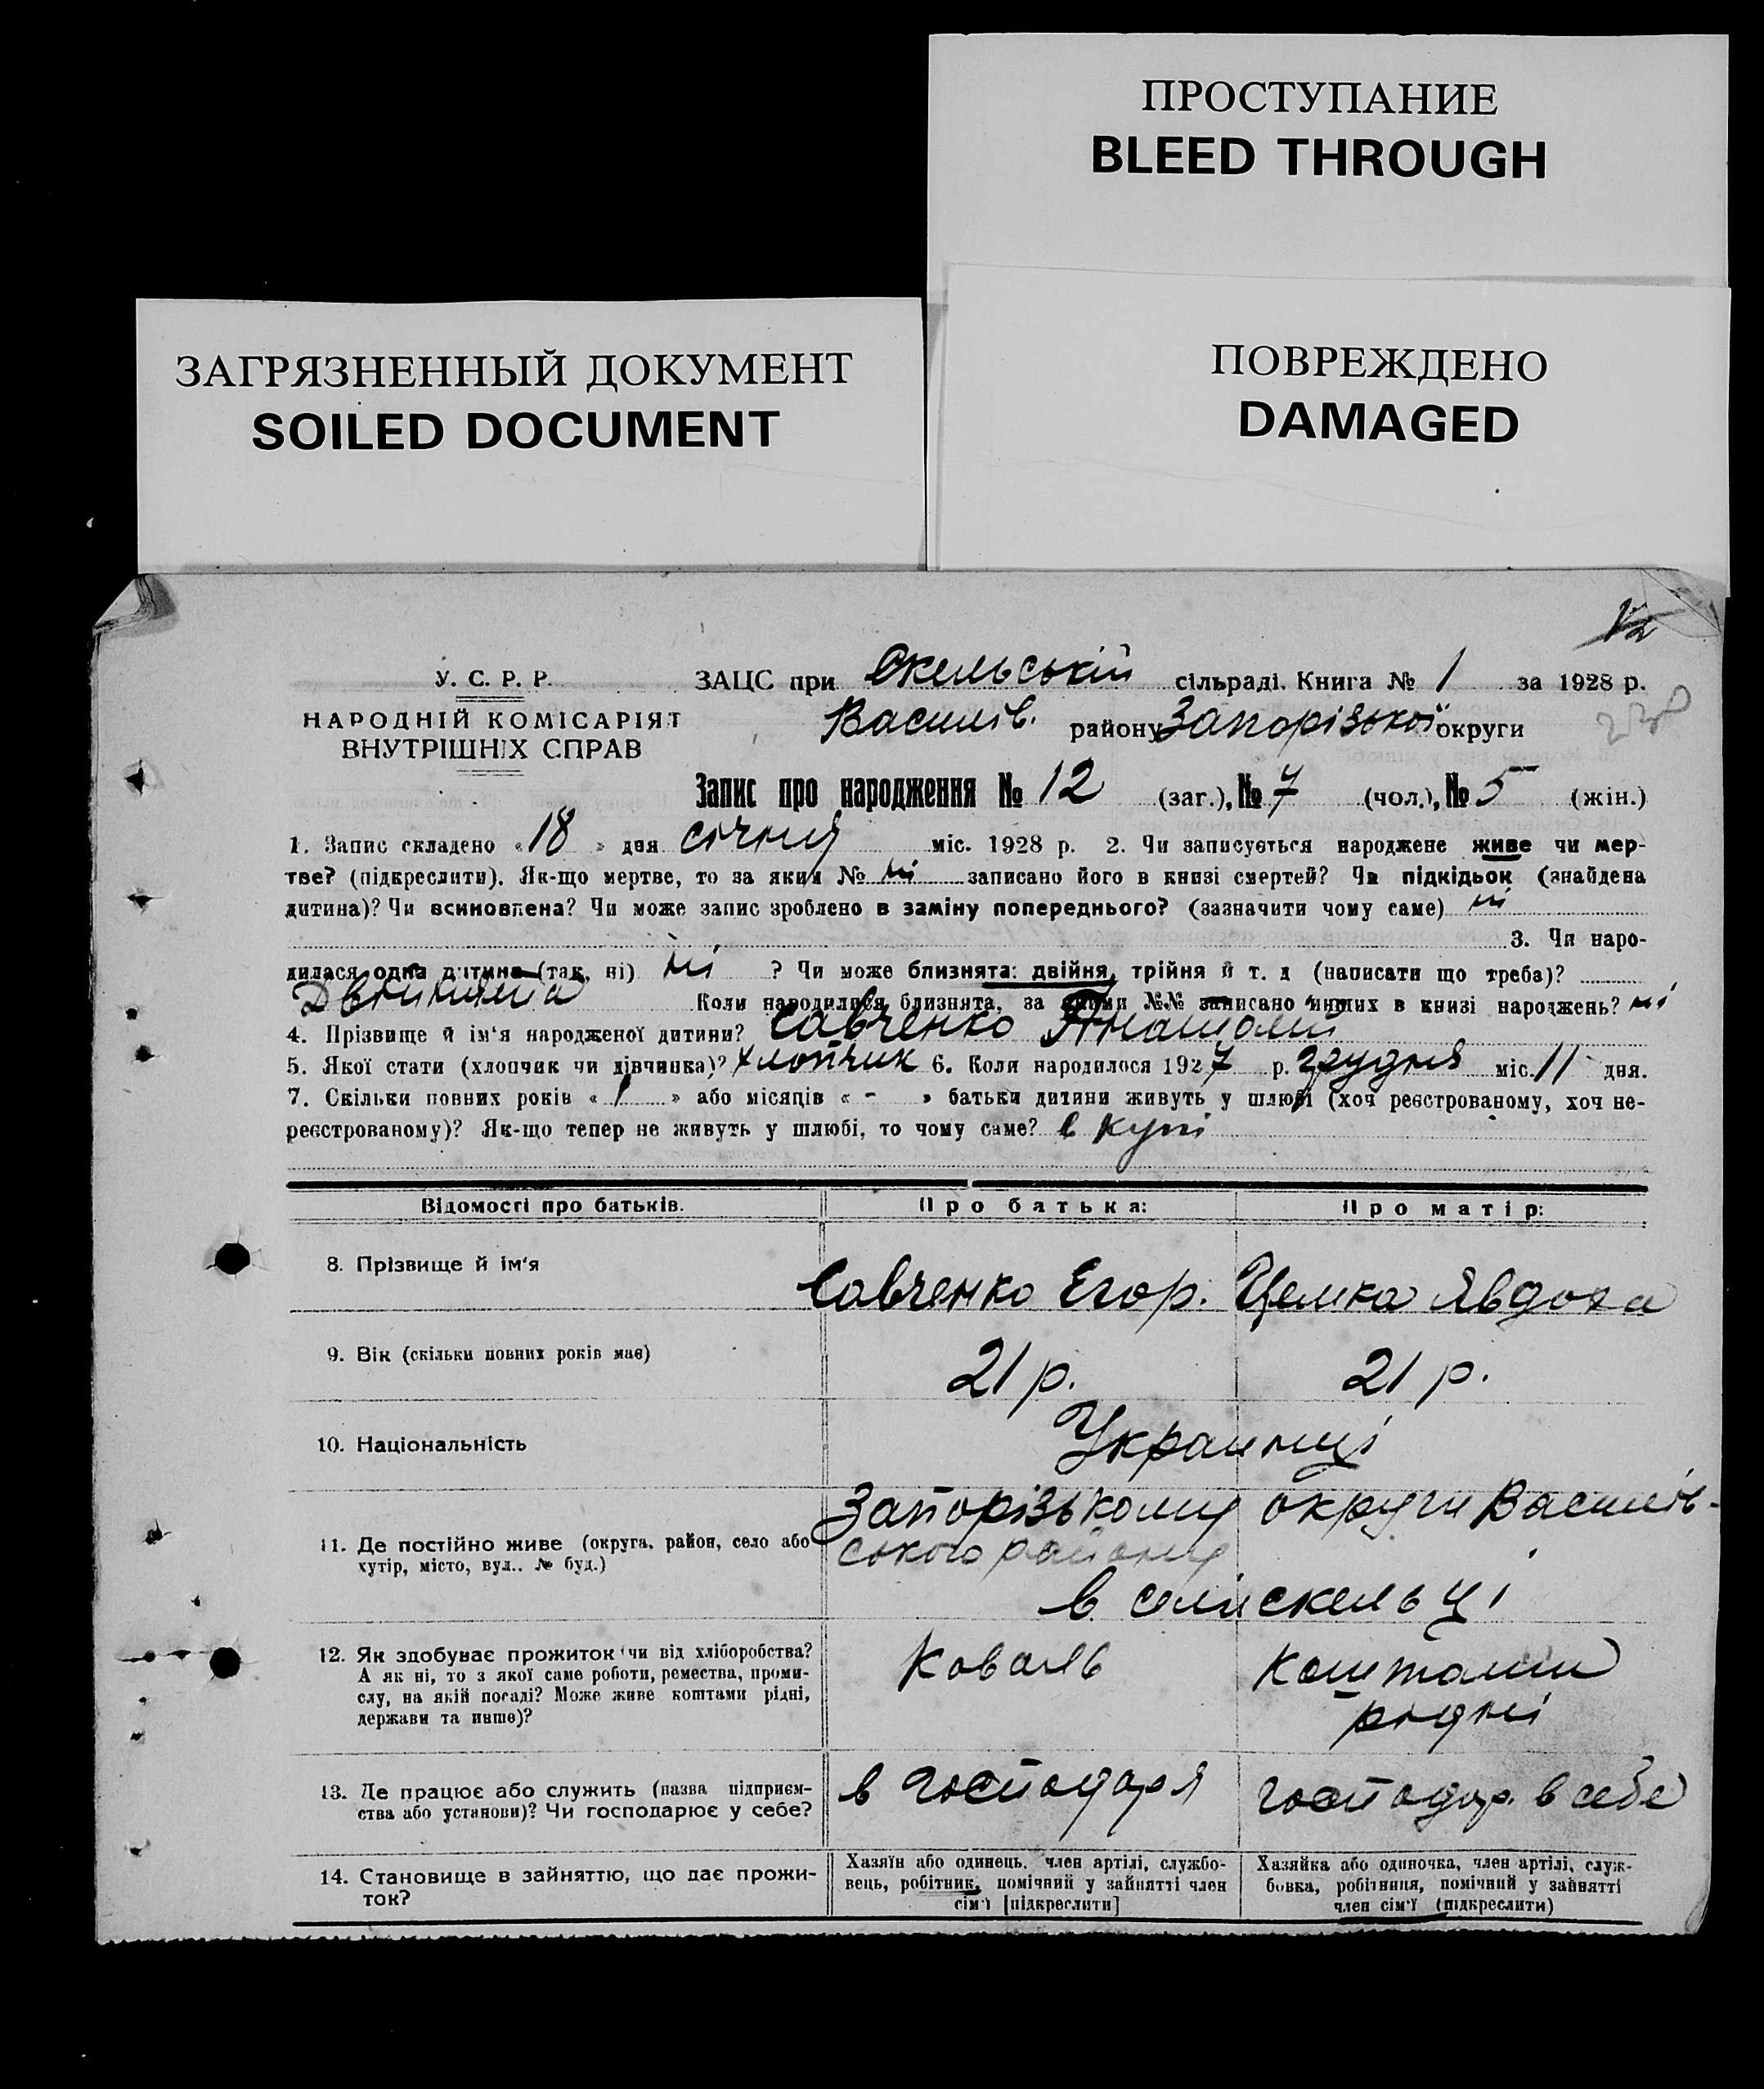 ПРОСТУПАНИЕ
BLEED THROUGH
ЗАГРЯЗНЕННЫЙ ДОКУМЕНТ
SOILED DOCUMENT
ПОВРЕЖДЕНО
DAMAGED
У. С. Р. Р.
НАРОДНІЙ КОМІСАРІЯТ
ВНУТРІШНІХ СПРАВ
ЗАЦС при Скельській сільраді. Книга № 1 за 1928 р.
Василів. району Запорізької округи
Запис про народження № 12 (заг.), № 7 (чол.), № 5 (жін.)
1. Запис складено « 18 » дня січня міс. 1928 р. 2. Чи записується народжене живе чи мер-
тве? (підкреслити). Як-що мертве, то за яким № ні записано його в книзі смертей? Чи підкідьок (знайдена
дитина)? Чи всиновлена? Чи може запис зроблено в заміну попереднього? (зазначити чому саме) ні
3. Чи наро-
дилася одна дитина (так, ні) ні ? Чи може близнята: двійня, трійня й т. д (написати що треба)?
Коли народилися близнята, за якими №№ записано инших в книзі народжень? ні
4. Прізвище й ім'я народженої дитини? Савченко
5. Якої стати (хлопчик чи дівчинка)? хлопчик 6. Коли народилося 1927 р. грудня міс. 11 дня.
7. Скільки повних років « 1 » або місяців « - » батьки дитини живуть у шлюбі (хоч реєстрованому, хоч не-
реєстрованому)? Як-що тепер не живуть у шлюбі, то чому саме? в купі
Відомості про батьків. Про батька: Про матір:
8. Прізвище й ім'я Савченко Егор. Явдоха
9. Вік (скільки повних років має) 21 р. 21 р.
10. Національність Украинці
11. Де постійно живе (округа, район, село або
хутір, місто, вул.. № буд.)
Запорізькому округи Василів-
ського району
в селі скельці
12. Як здобуває прожиток чи від хліборобства?
А як ні, то з якої саме роботи, ремества, проми-
слу, на якій посаді? Може живе коштами рідні,
держави та инше)?
Коваль
Коштами
рідні
13. Де працює або служить (назва підприєм-
ства або установи)? Чи господарює у себе?
в господаря
господар. в себе
14. Становище в зайняттю, що дає прожи-
ток?
Хазяїн або одинець, член артілі, службо-
вець, робітник, помічний у зайнятті член
сім'ї [підкреслити]
Хазяйка або одиночка, член артілі, служ-
бовка, робітниця, помічний у зайнятті
член сім'ї (підкреслити)